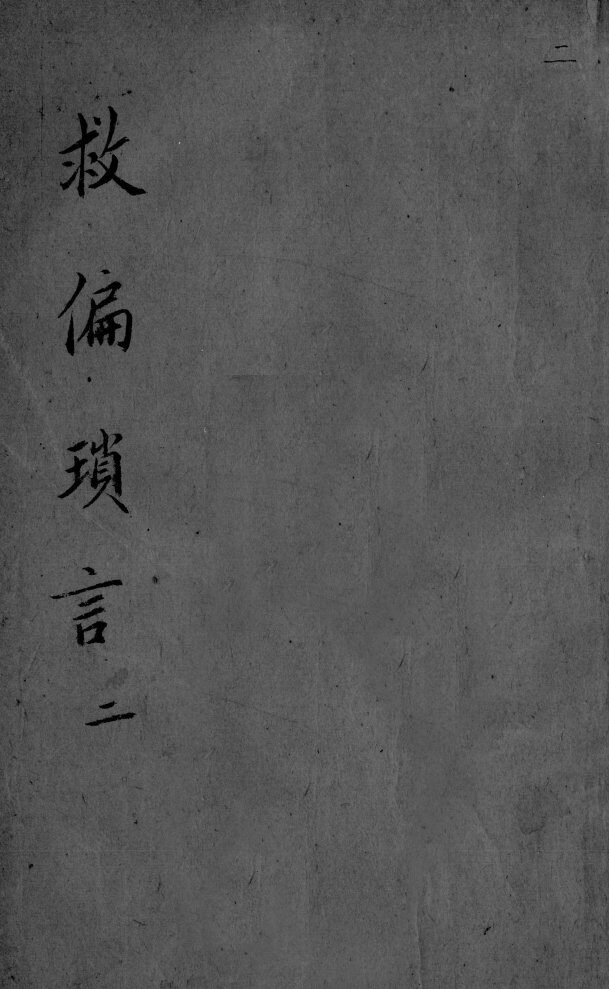 二
救偏瑣言二